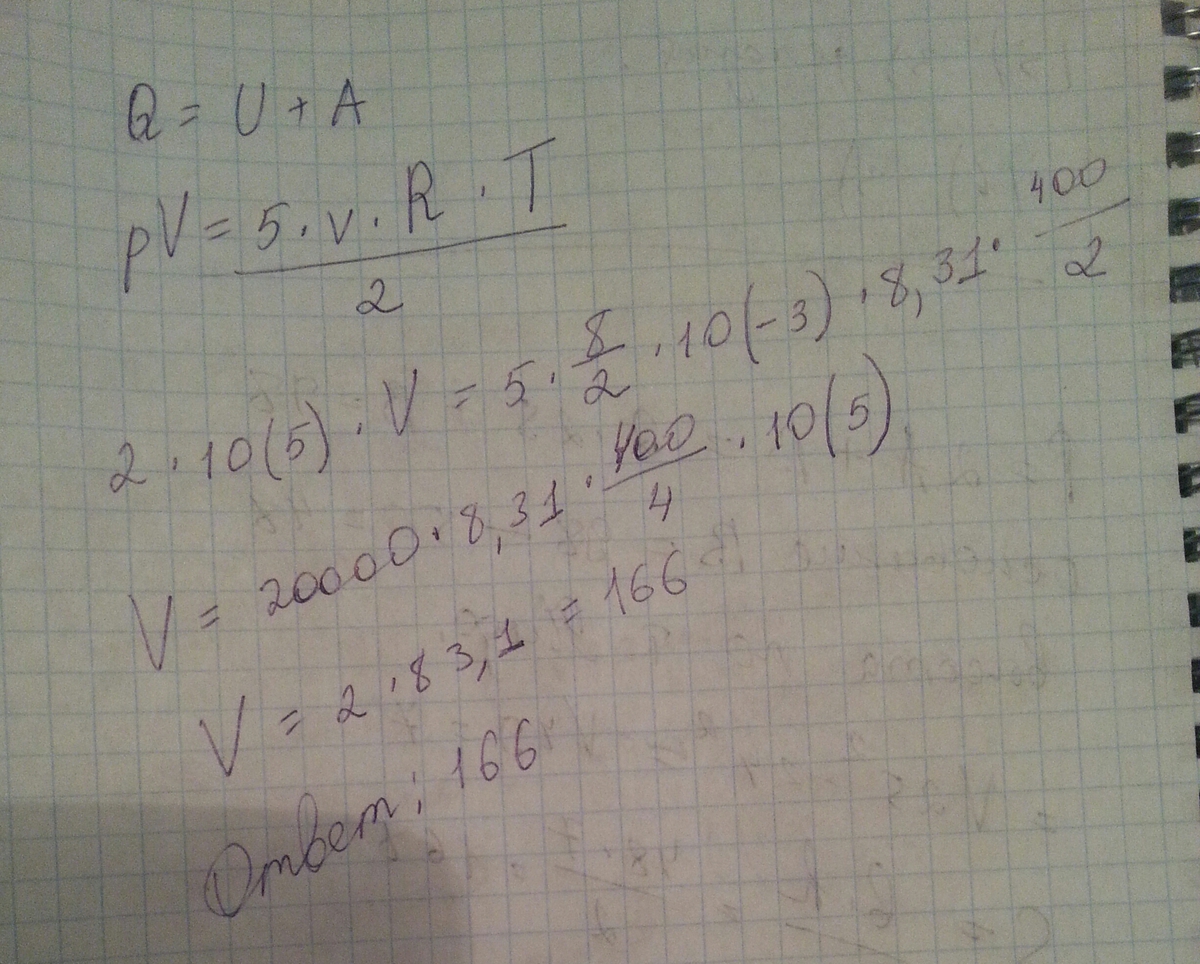 Q = U + A
pV = 5 · v · R · T / 2
2 · 10(5) · V = 5 · 8/2 · 10(-3) · 8,31 · 400/2
V = 20000 · 8,31 · 400/4 · 10(5)
V = 2 · 83,1 = 166
Ответ: 166